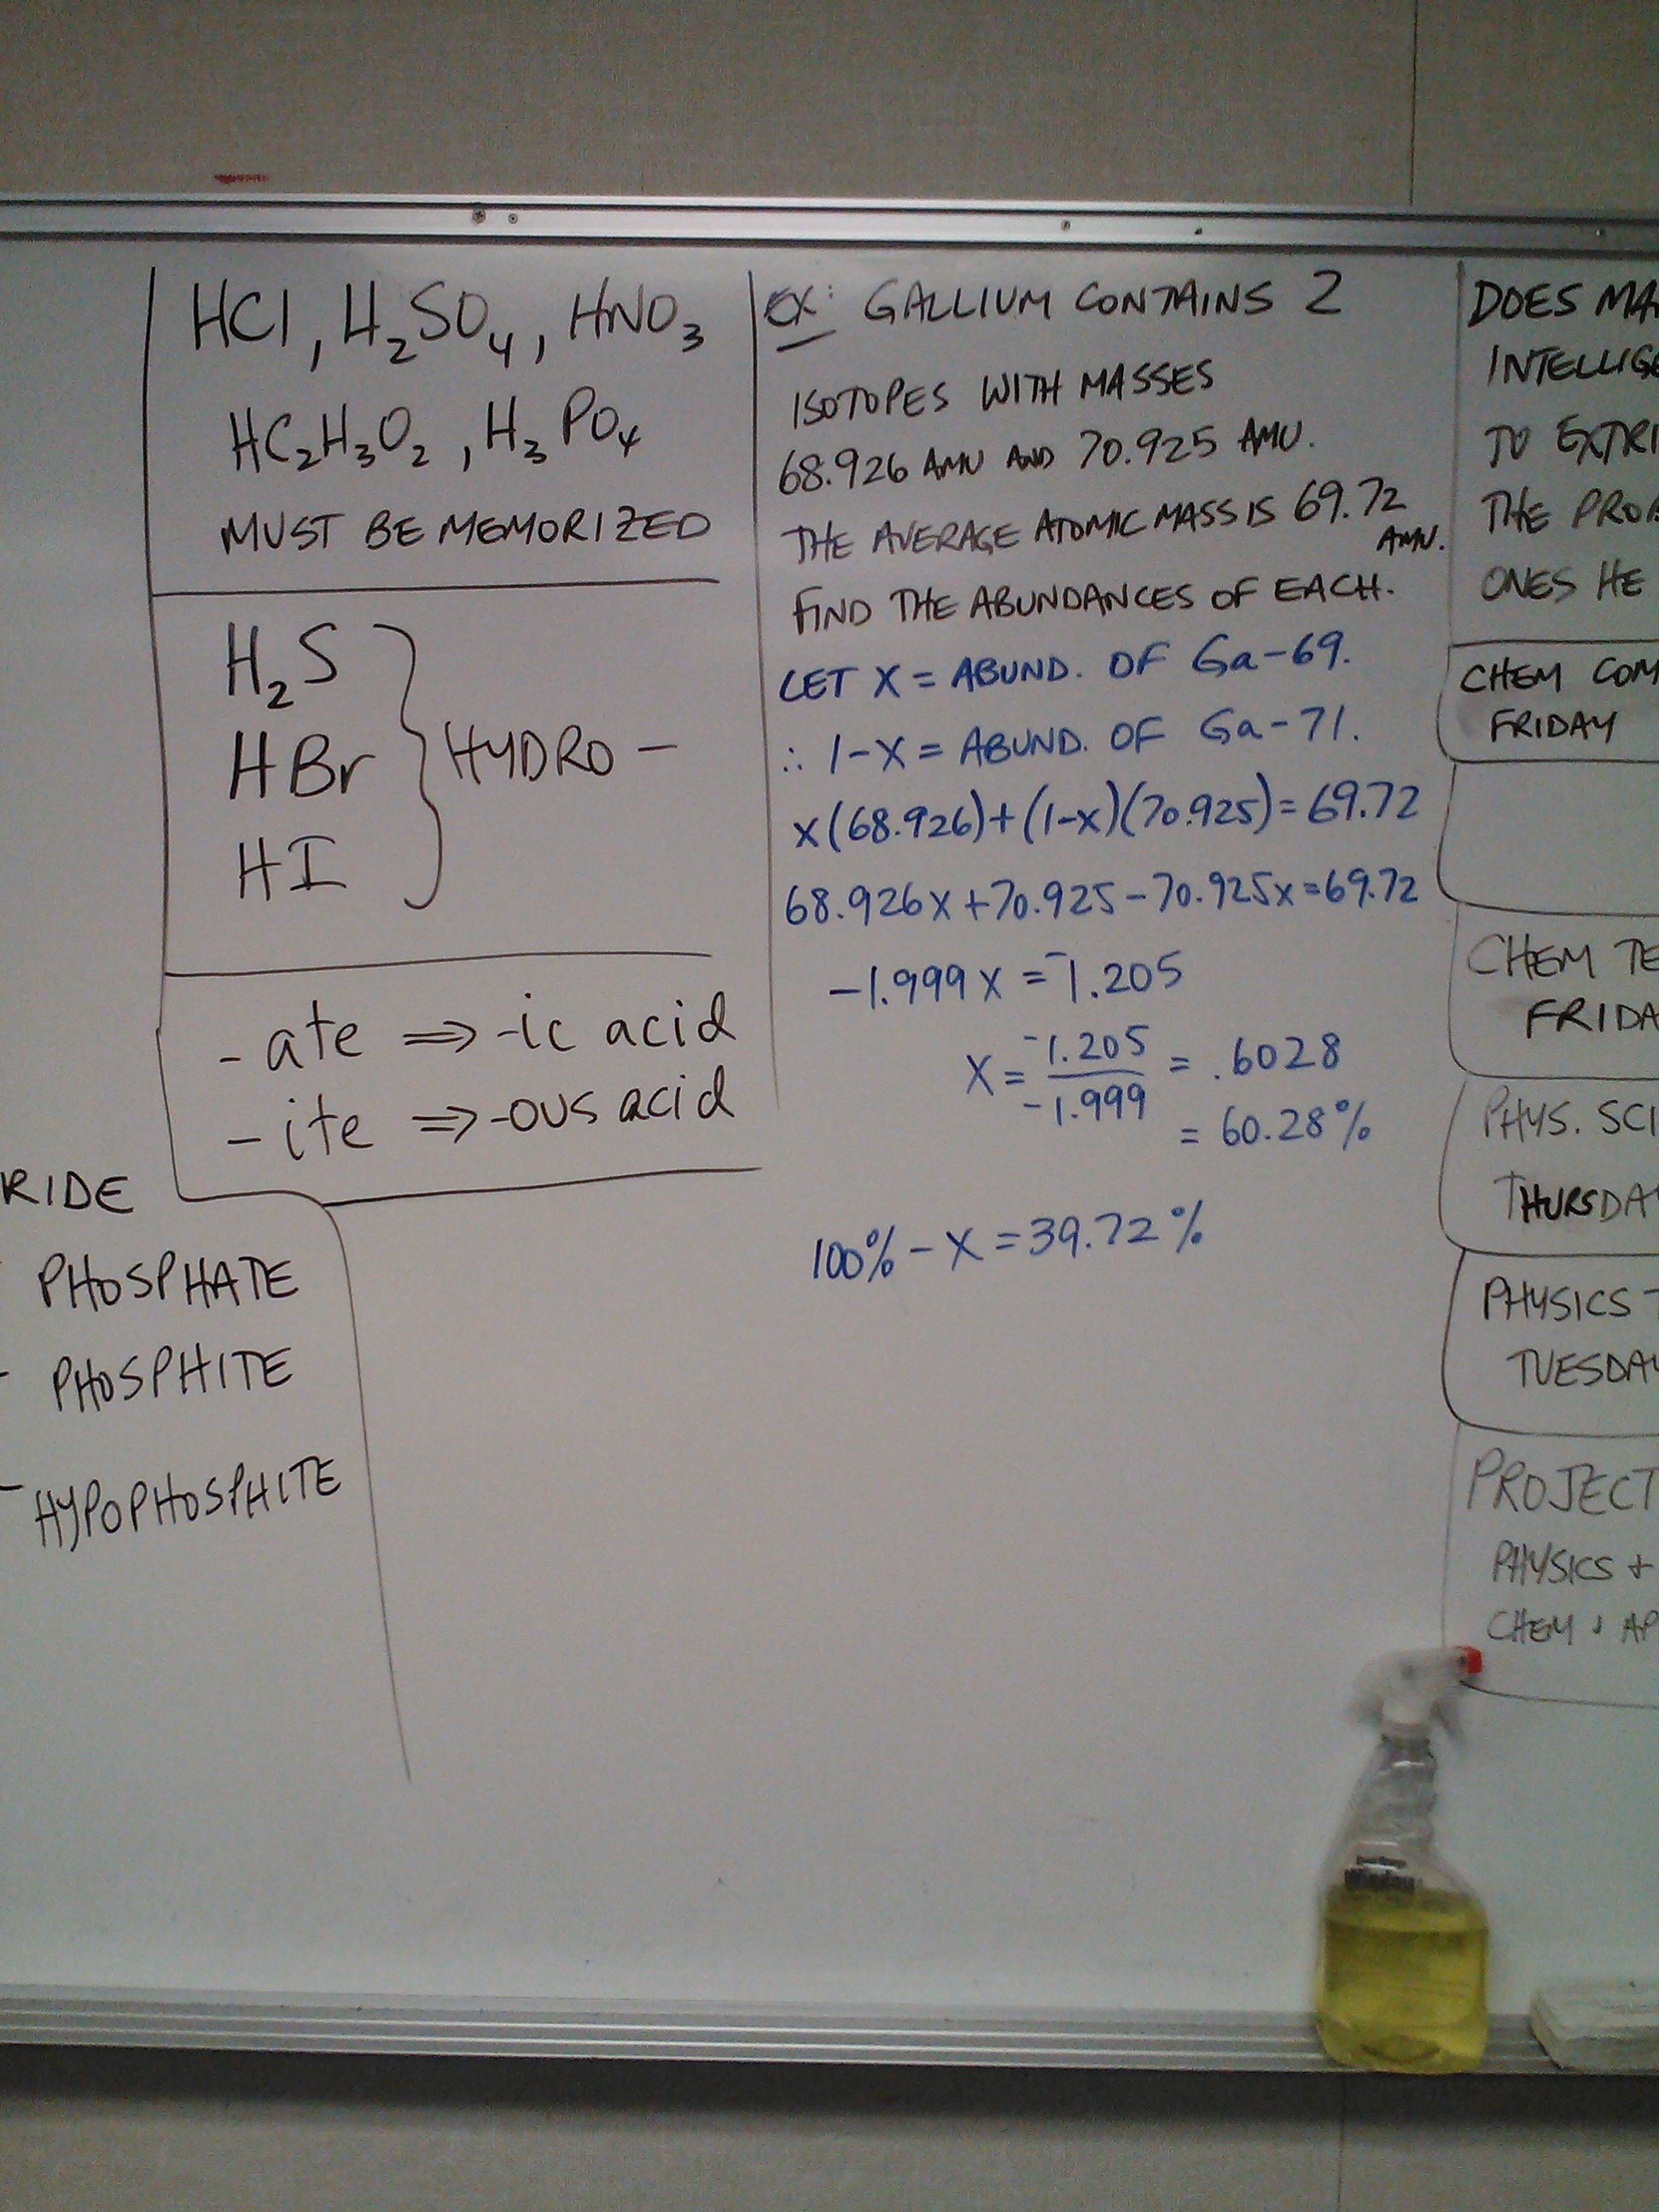 HCl, H₂SO₄, HNO₃
HC₂H₃O₂, H₃PO₄
MUST BE MEMORIZED
H₂S
HBr
HI
HYDRO -
- ate ⇒ -ic acid
- ite ⇒ -ous acid
RIDE
PHOSPHATE
- PHOSPHITE
- HYPOPHOSPHITE
EX: GALLIUM CONTAINS 2
ISOTOPES WITH MASSES
68.926 AMU AND 70.925 AMU.
THE AVERAGE ATOMIC MASS IS 69.72
AMU.
FIND THE ABUNDANCES OF EACH.
LET X = ABUND. OF Ga-69.
∴ 1-X = ABUND. OF Ga-71.
x(68.926)+(1-x)(70.925)=69.72
68.926x+70.925-70.925x=69.72
-1.999x = -1.205
X = -1.205 / -1.999 = .6028
= 60.28%
100% - X = 39.72%
DOES MA
INTELLIG
TO EXTRI
THE PROB
ONES HE
CHEM COM
FRIDAY
CHEM TE
FRIDA
PHYS. SCI
THURSDAY
PHYSICS T
TUESDAY
PROJECT
PHYSICS +
CHEM + AP
Window